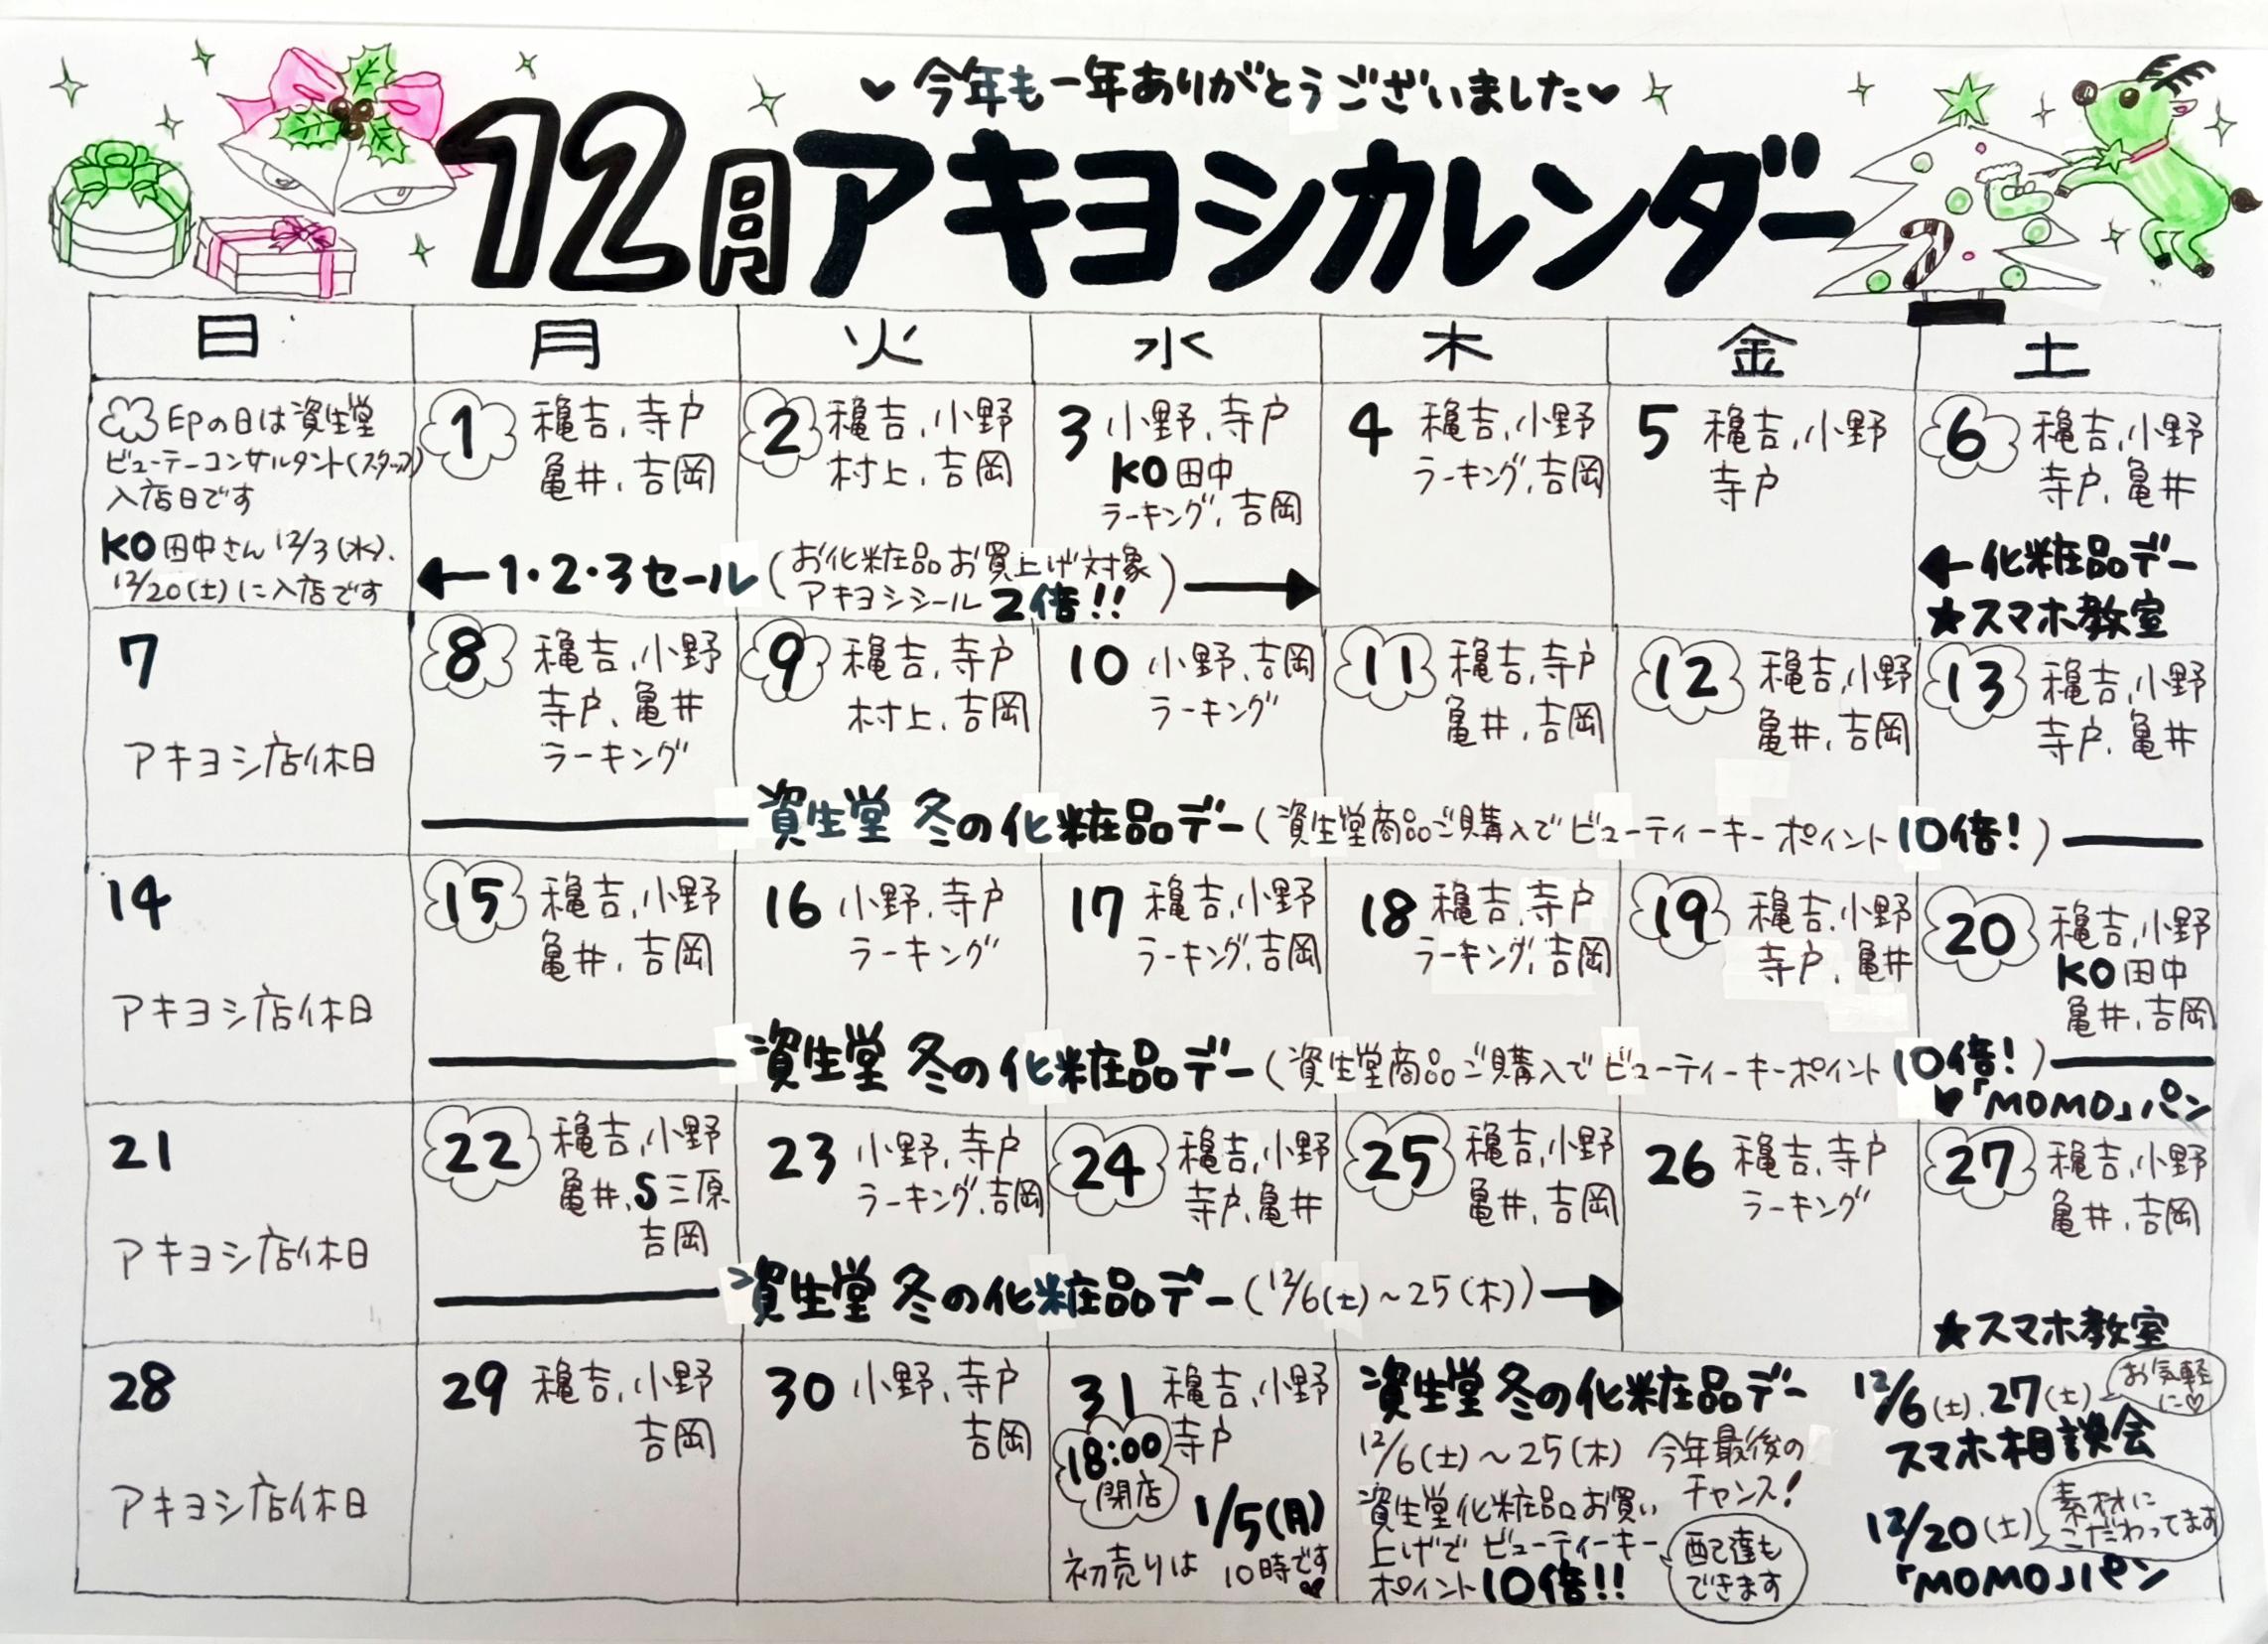 ♥今年も一年ありがとうございました♥
12月アキヨシカレンダー
日 月 火 水 木 金 土
印の日は資生堂
ビューテーコンサルタント(スタッフ)
入店日です
KO田中さん 12/3(水).
12/20(土)に入店です
1 穐吉,寺戸
亀井,吉岡
2 穐吉,小野
村上,吉岡
3 小野,寺戸
KO田中
ラーキング,吉岡
4 穐吉,小野
ラーキング,吉岡
5 穐吉,小野
寺戸
6 穐吉,小野
寺戸,亀井
←1・2・3セール(お化粧品お買上げ対象
アキヨシシール2倍!!)→
←化粧品デー
★スマホ教室
7
アキヨシ店休日
8 穐吉,小野
寺戸,亀井
ラーキング
9 穐吉,寺戸
村上,吉岡
10 小野,吉岡
ラーキング
11 穐吉,寺戸
亀井,吉岡
12 穐吉,小野
亀井,吉岡
13 穐吉,小野
寺戸,亀井
資生堂 冬の化粧品デー(資生堂商品ご購入でビューティーキーポイント10倍!)
14
アキヨシ店休日
15 穐吉,小野
亀井,吉岡
16 小野,寺戸
ラーキング
17 穐吉,小野
ラーキング,吉岡
18 穐吉,寺戸
ラーキング,吉岡
19 穐吉,小野
寺戸,亀井
20 穐吉,小野
KO田中
亀井,吉岡
資生堂 冬の化粧品デー(資生堂商品ご購入でビューティーキーポイント10倍!)
♥「MOMO」パン
21
アキヨシ店休日
22 穐吉,小野
亀井,S三原
吉岡
23 小野,寺戸
ラーキング,吉岡
24 穐吉,小野
寺戸,亀井
25 穐吉,小野
亀井,吉岡
26 穐吉,寺戸
ラーキング
27 穐吉,小野
亀井,吉岡
資生堂 冬の化粧品デー(12/6(土)~25(木))→
★スマホ教室
28
アキヨシ店休日
29 穐吉,小野
吉岡
30 小野,寺戸
吉岡
31 穐吉,小野
寺戸
18:00
閉店
1/5(月)
初売りは 10時です♥
資生堂 冬の化粧品デー
12/6(土)~25(木) 今年最後の
チャンス!
資生堂化粧品お買い
上げでビューティーキー
ポイント10倍!!
配達も
できます
12/6(土).27(土)
お気軽
に♡
スマホ相談会
12/20(土)
素材に
こだわってます
「MOMO」パン